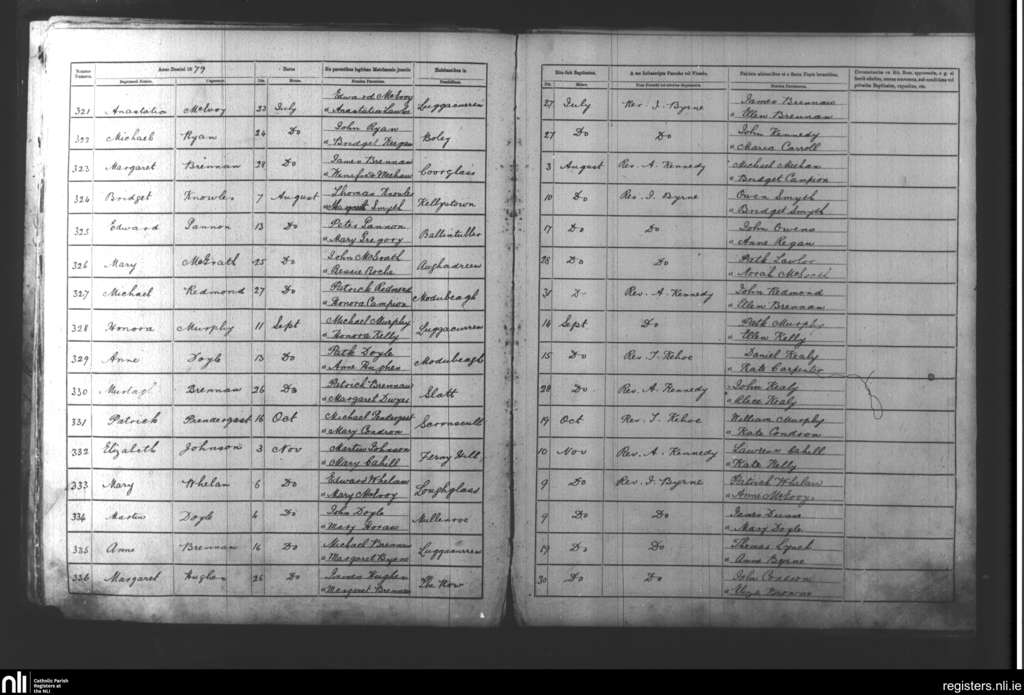 Anno Domini 1879
321 Anastatia McEvoy 22 July Edward McEvoy Luggacurren 27 July Rev. J. Byrne James Brennan
" Anastatia Lawler " Ellen Brennan
322 Michael Ryan 24 Do John Ryan Boley 27 Do Do John Kennedy
" Bridget Kergan " Maria Carroll
323 Margaret Brennan 28 Do James Brennan Coorglass 3 August Rev. A. Kennedy Michael Meehan
" Winefrid Meehan " Bridget Campion
324 Bridget Knowles 7 August Thomas Knowles Kellystown 10 Do Rev. J. Byrne Owen Smyth
" Margaret Smyth " Bridget Smyth
325 Edward Pannon 13 Do Peter Pannon Ballintubber 17 Do Do John Owens
" Mary Gregory " Anne Regan
326 Mary McGrath 25 Do John McGrath Aughadreen 28 Do Do Patk Lawlor
" Bessie Roche " Norah
327 Michael Redmond 27 Do Patrick Redmond Modubeagh 31 Do Rev. A. Kennedy John Redmond
" Honora Campion " Ellen Brennan
328 Honora Murphy 11 Sept Michael Murphy Luggacurren 14 Sept Do Patk Murphy
" Honora Kelly " Ellen Kelly
329 Anne Doyle 13 Do Patk Doyle Modubeagh 15 Do Rev. T. Kehoe Daniel Healy
" Anne Hughes " Kate Carpenter
330 Brennan 26 Do Patrick Brennan Slatt 28 Do Rev. A. Kennedy John Healy
" Margaret Dwyer " Alice Healy
331 Patrick Prendergast 16 Oct Michael Pendergast 19 Oct Rev. T. Kehoe William Murphy
" Mary Condron " Kate Condron
332 Elizabeth Johnson 3 Nov Martin Johnson Ferny Hill 10 Nov Rev. A. Kennedy Lawrence Cahill
" Mary Cahill " Kate Kelly
333 Mary Whelan 6 Do Edward Whelan Loughglass 9 Do Rev. J. Byrne Patrick Whelan
" Mary McEvoy " Anne McEvoy
334 Martin Doyle 6 Do John Doyle Mullenroe 9 Do Do James Dunne
" Mary Horan " Mary Doyle
335 Anne Brennan 16 Do Michael Brennan Luggacurren 19 Do Do Thomas Lynch
" Margaret Byrne " Anne Byrne
336 Margaret Hughes 26 Do James Hughes The Row 30 Do Do John Condron
" Margaret Brennan " Eliza Browne
nli Catholic Parish
Registers at
the NLI
registers.nli.ie